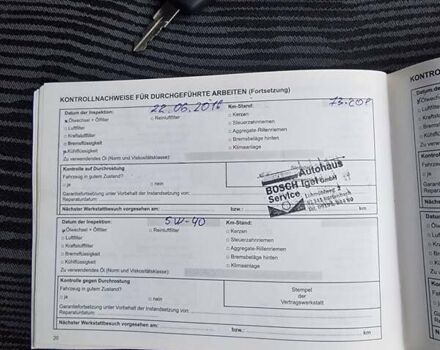 KONTROLLNACHWEISE FÜR DURCHGEFÜHRTE ARBEITEN (Fortsetzung)
Datum der Inspektion: 22.06.2016 Km-Stand:
Ölwechsel + Ölfilter Reinluftfilter Kerzen
Luftfilter Steuerzahnriemen
Kraftstoffilter Aggregate-Rillenriemen
Bremsflüssigkeit Bremsbeläge hinten
Kühlflüssigkeit Klimaanlage
Zu verwendendes Öl (Norm und Viskositätsklasse):
Kontrolle auf Durchrostung
Fahrzeug in gutem Zustand?
ja nein
Garantiefortsetzung unter Vorbehalt der Instandsetzung von:
Reparaturdatum:
Autohaus
BOSCH Igel GmbH
Service
Nächster Werkstattbesuch vorgesehen am: bzw.:
Datum der Inspektion: 5W-40 Km-Stand:
Ölwechsel + Ölfilter Reinluftfilter Kerzen
Luftfilter Steuerzahnriemen
Kraftstoffilter Aggregate-Rillenriemen
Bremsflüssigkeit Bremsbeläge hinten
Kühlflüssigkeit Klimaanlage
Zu verwendendes Öl (Norm und Viskositätsklasse):
Kontrolle gegen Durchrostung
Fahrzeug in gutem Zustand?
ja nein
Garantiefortsetzung unter Vorbehalt der Instandsetzung von:
Reparaturdatum:
Stempel
der
Vertragswerkstatt
Nächster Werkstattbesuch vorgesehen am: bzw.: km